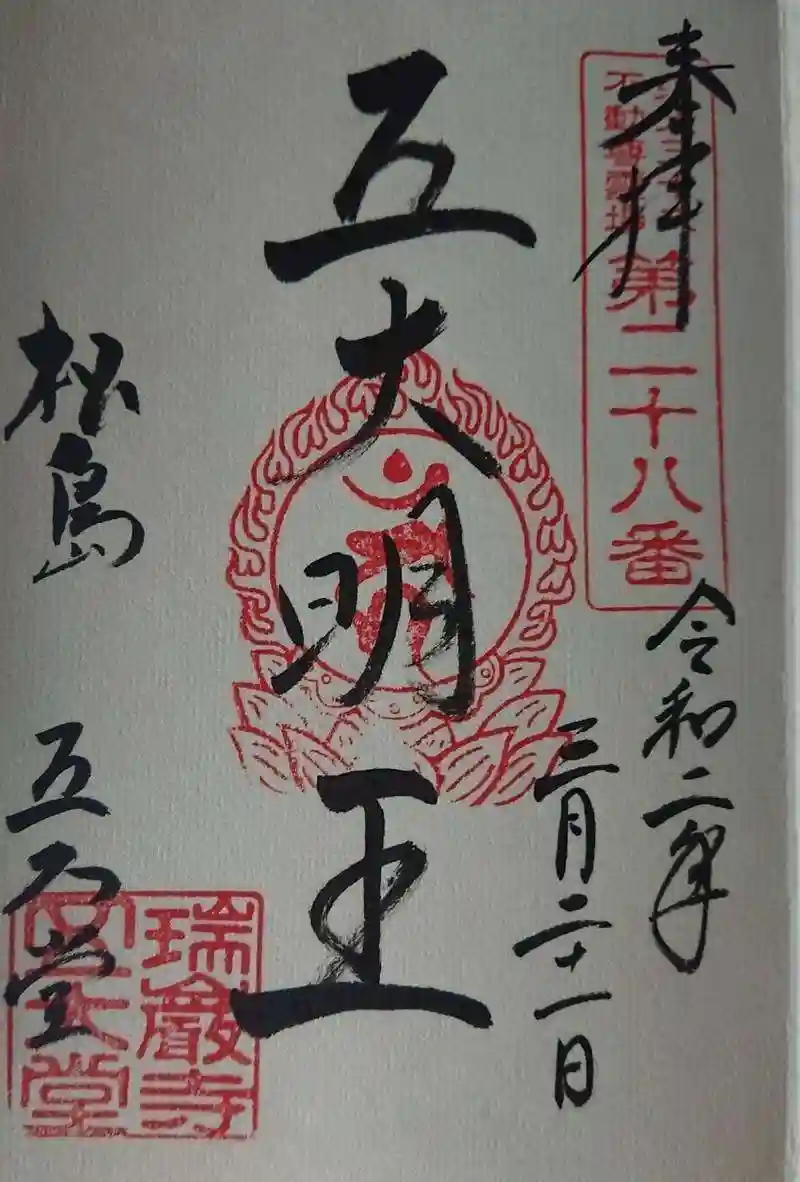 奉拝
不動尊霊場
第二十八番
令和二年
三月二十一日
五大明王
松島 五大堂
瑞巌寺
五大堂